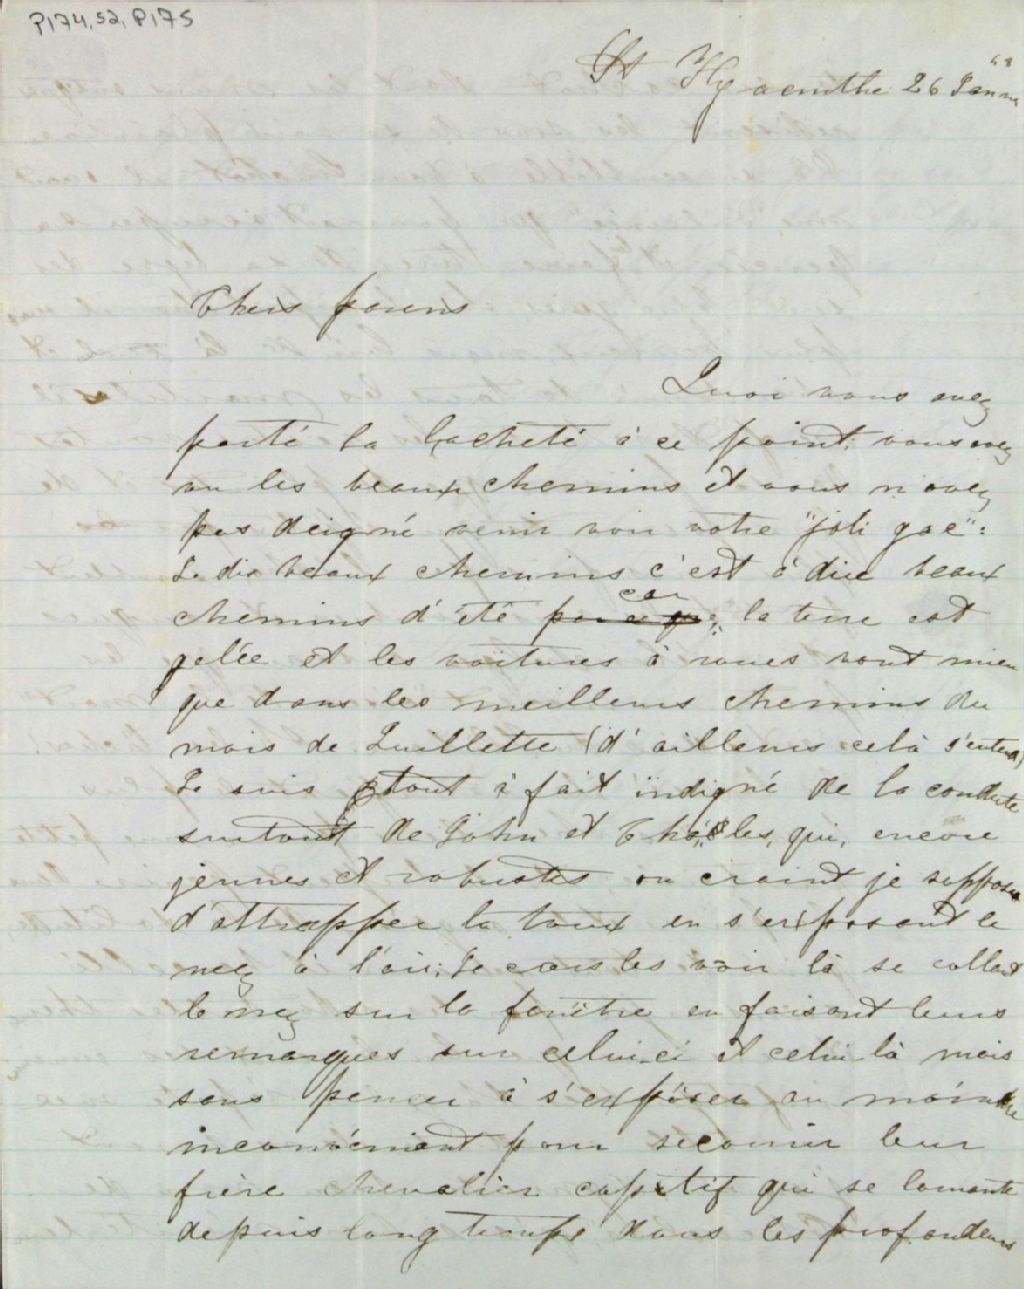 P174, S2, P175
St Hyacinthe 26 Jan
68
Chers parens
Quoi vous avez
porté la lacheté à ce point, vous avez
vu les beaux chemins et vous n'avez
pas deigné venir voir votre "joli gas":
Je dis beaux chemins c'est à dire beaux
car
chemins d'été parceque la terre est
gelée et les voitures à roues vont mieu
que dans les meilleurs chemins du
mois de Juillette (d'ailleurs celà s'entend)
Je suis tout à fait indigné de la conduite
surtout de John et Charles, qui, encore
jeunes et robustes, on craint je suppose
d'attrapper la toux en s'exposant le
nez à l'air; Je crois les voir là se collant
le nez sur la fenêtre en faisant leurs
remarques sur celui-ci et celui là mais
sans penser à s'exposer au moindre
inconvénient pour secourir leur
frère chevalier captif qui se lamente
depuis long temps dans les profondeurs